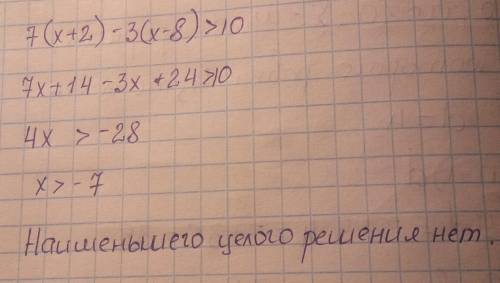 7(x+2)-3(x-8)>10
7x+14-3x+24>10
4x > -28
x > -7
Наименьшего целого решения нет.